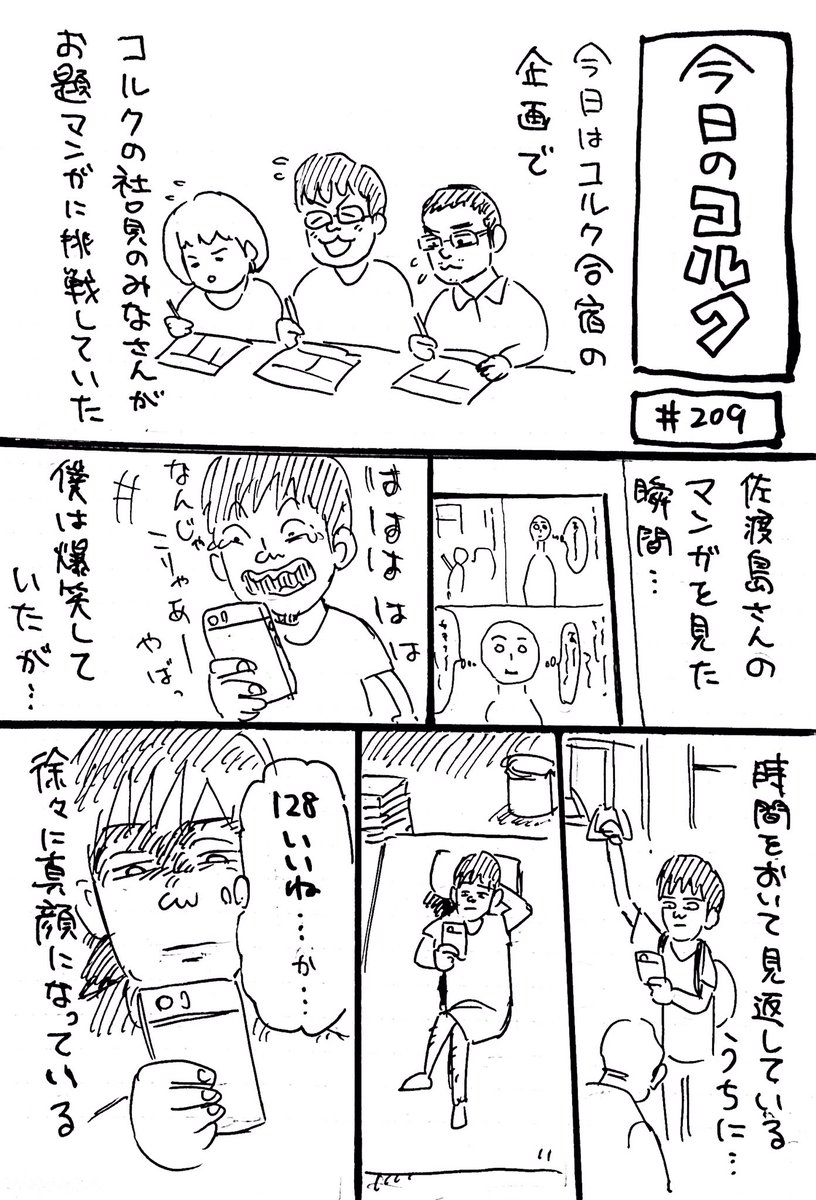 今日のコルク
#209
今日はコルク合宿の
企画で
コルクの社員のみなさんが
お題マンガに挑戦していた
佐渡島さんの
マンガを見た
瞬間…
はははは
なんじゃ
こりゃあー
やばっ
僕は爆笑して
いたが…
時間をおいて見返している
うちに…
128
いいね…か…
徐々に真顔になっている